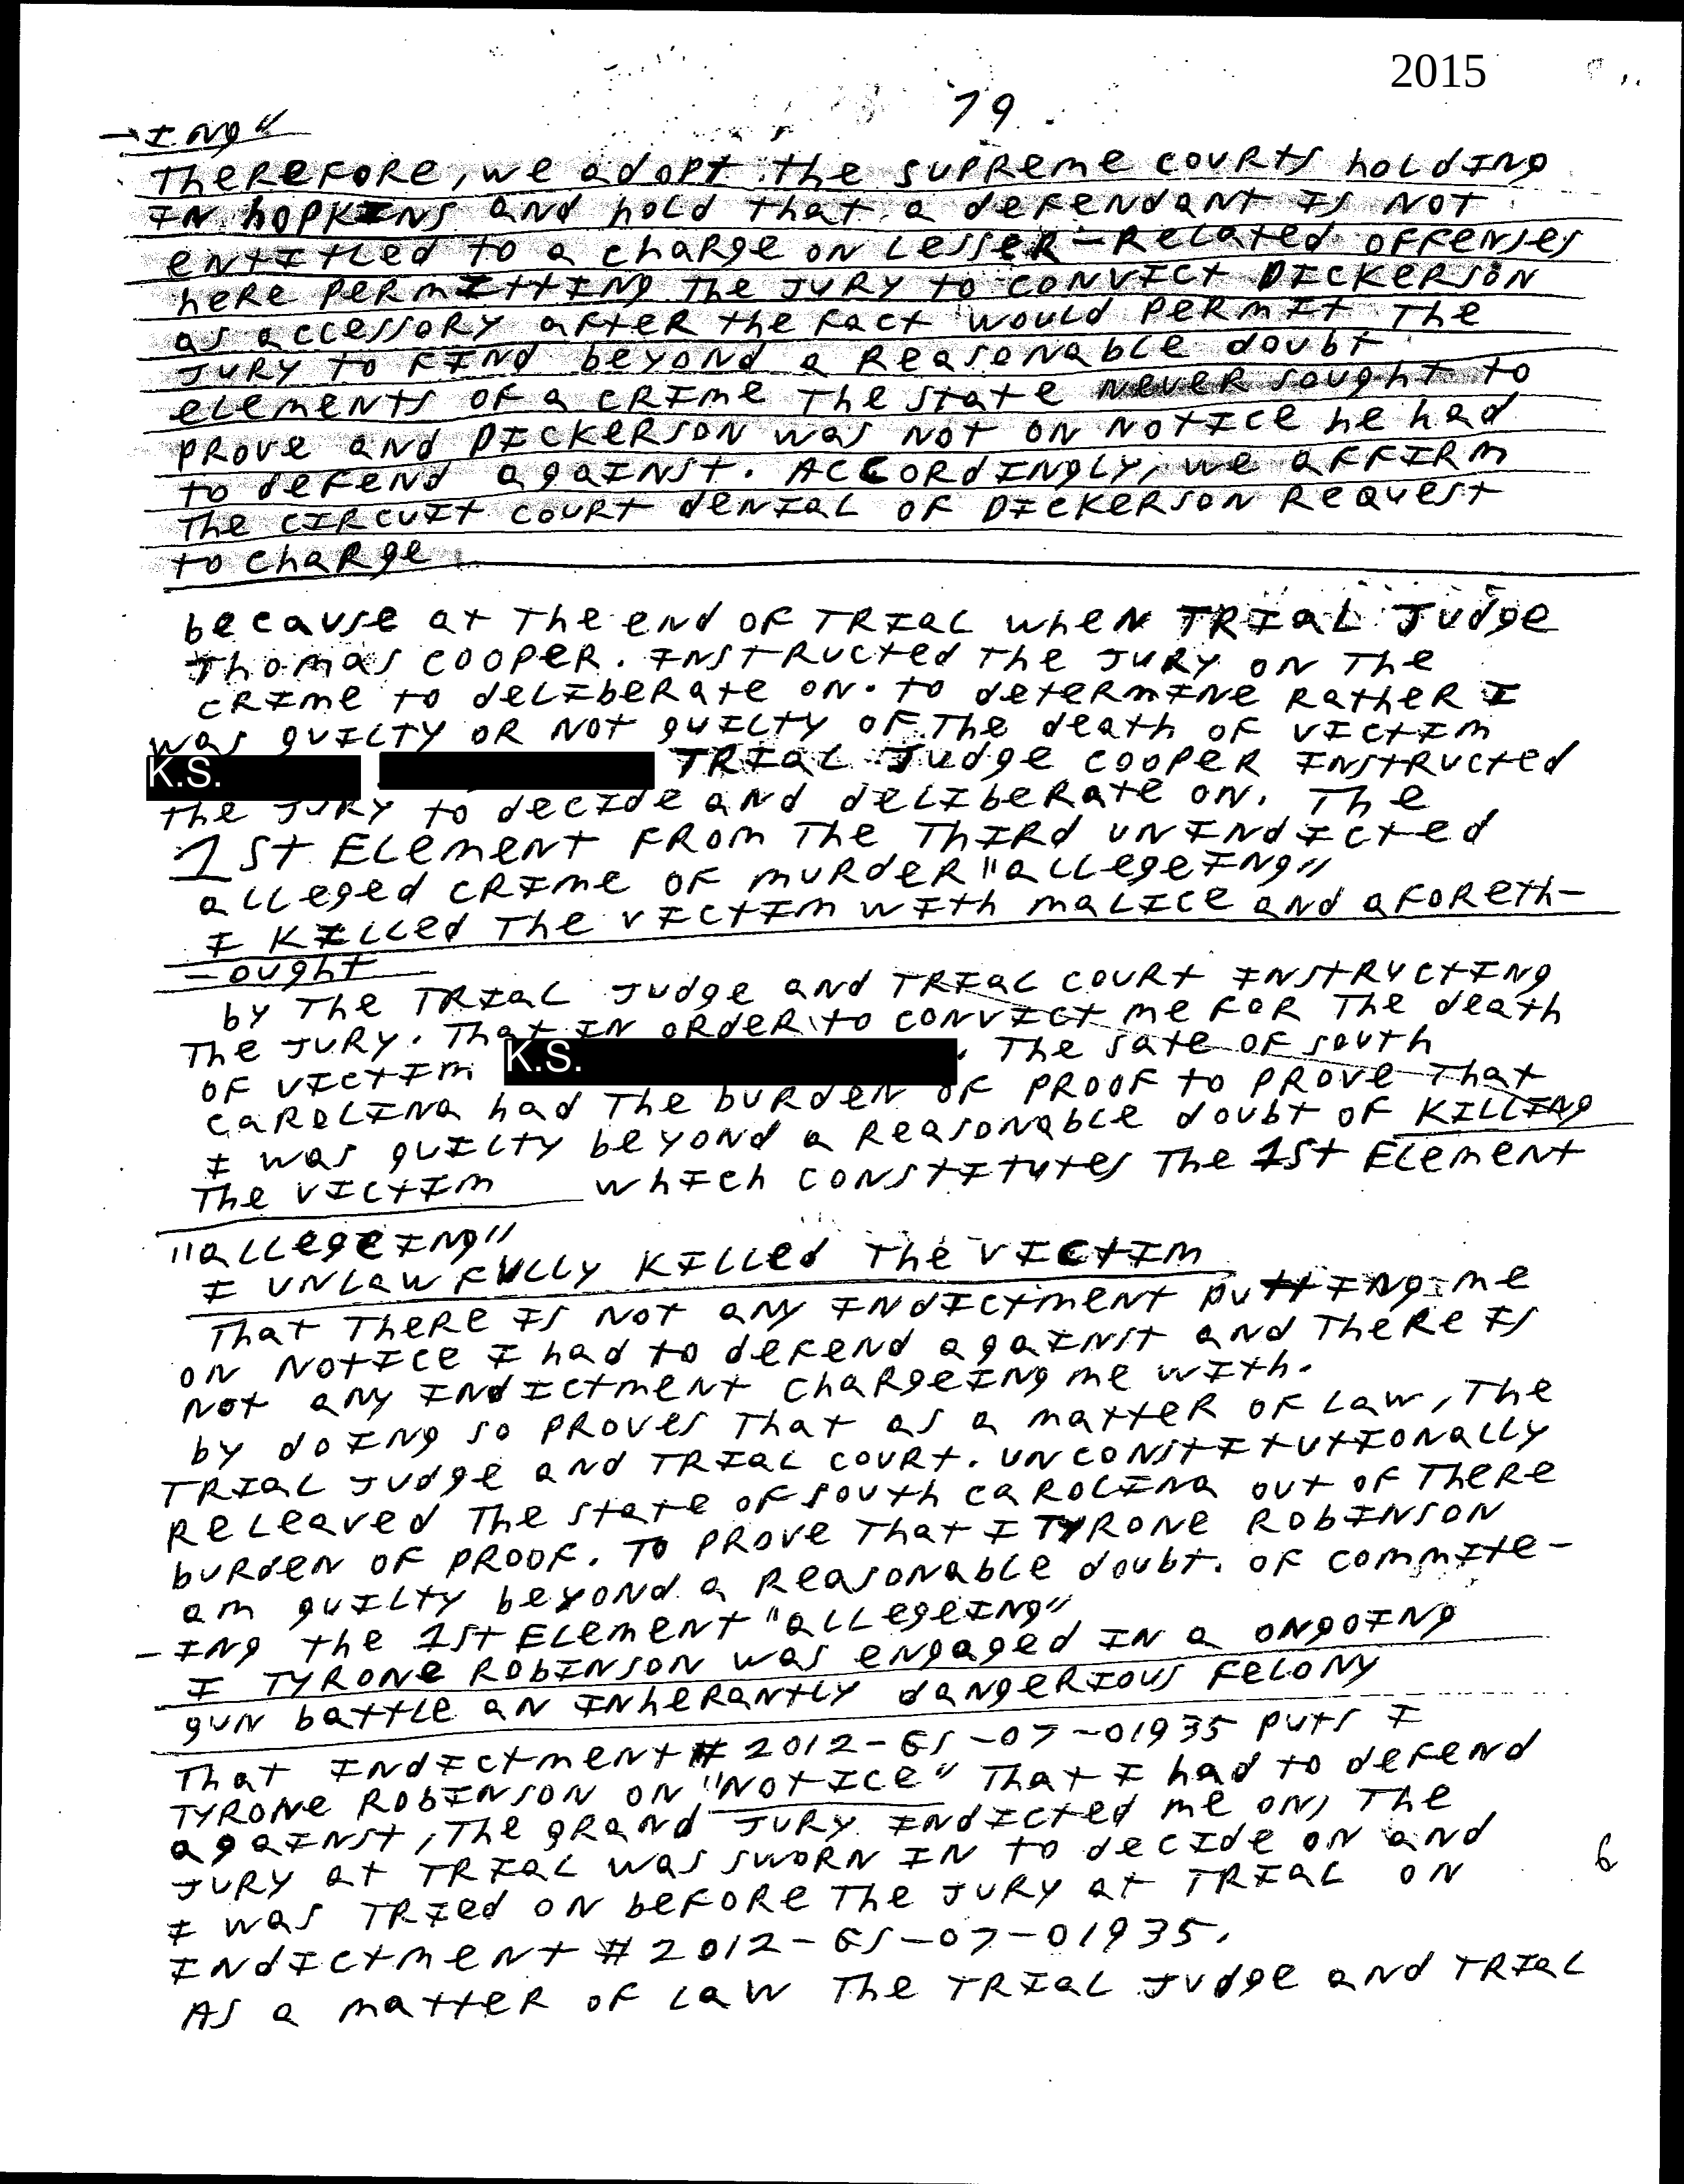 2015
79.
-ING"
Therefore, we adopt the supreme courts holding
in hopkins and hold that a defendant is not
entitled to a charge on lesser-related offenses
here permitting the jury to convict Dickerson
as accessory after the fact would permit the
jury to find beyond a reasonable doubt
elements of a crime the state never sought to
prove and Dickerson was not on notice he had
to defend against. Accordingly, we affirm
the circuit court denial of Dickerson request
to charge
because at the end of trial when trial Judge
Thomas Cooper. instructed the jury on the
crime to deliberate on. to determine rather I
was guilty or not guilty of the death of victim
K.S. trial Judge Cooper instructed
the jury to decide and deliberate on. The
1st Element from the third unindicted
alleged crime of murder "allegeing"
I killed the victim with malice and aforeth-
-ought
by the trial judge and trial court instructing
the jury. That in order to convict me for the death
of victim K.S. . The sate of south
carolina had the burden of proof to prove that
I was guilty beyond a reasonable doubt of killing
the victim which constitutes the 1st Element
"allegeing"
I unlawfully killed the victim
That there is not any indictment putting me
on notice I had to defend against and there is
not any indictment chargeing me with.
by doing so proves that as a matter of law, the
trial judge and trial court. unconstitutionally
releaved the state of south carolina out of there
burden of proof. To prove that I Tyrone Robinson
am guilty beyond a reasonable doubt. of commite-
-ing the 1st Element "allegeing"
I Tyrone Robinson was engaged in a ongoing
gun battle an inherantly dangerious felony
That indictment # 2012-GS-07-01935 puts I
Tyrone Robinson on "notice" that I had to defend
against, the grand jury indicted me on, the
jury at trial was sworn in to decide on and
I was tried on before the jury at trial on
indictment # 2012-GS-07-01935.
As a matter of law the trial judge and trial
6